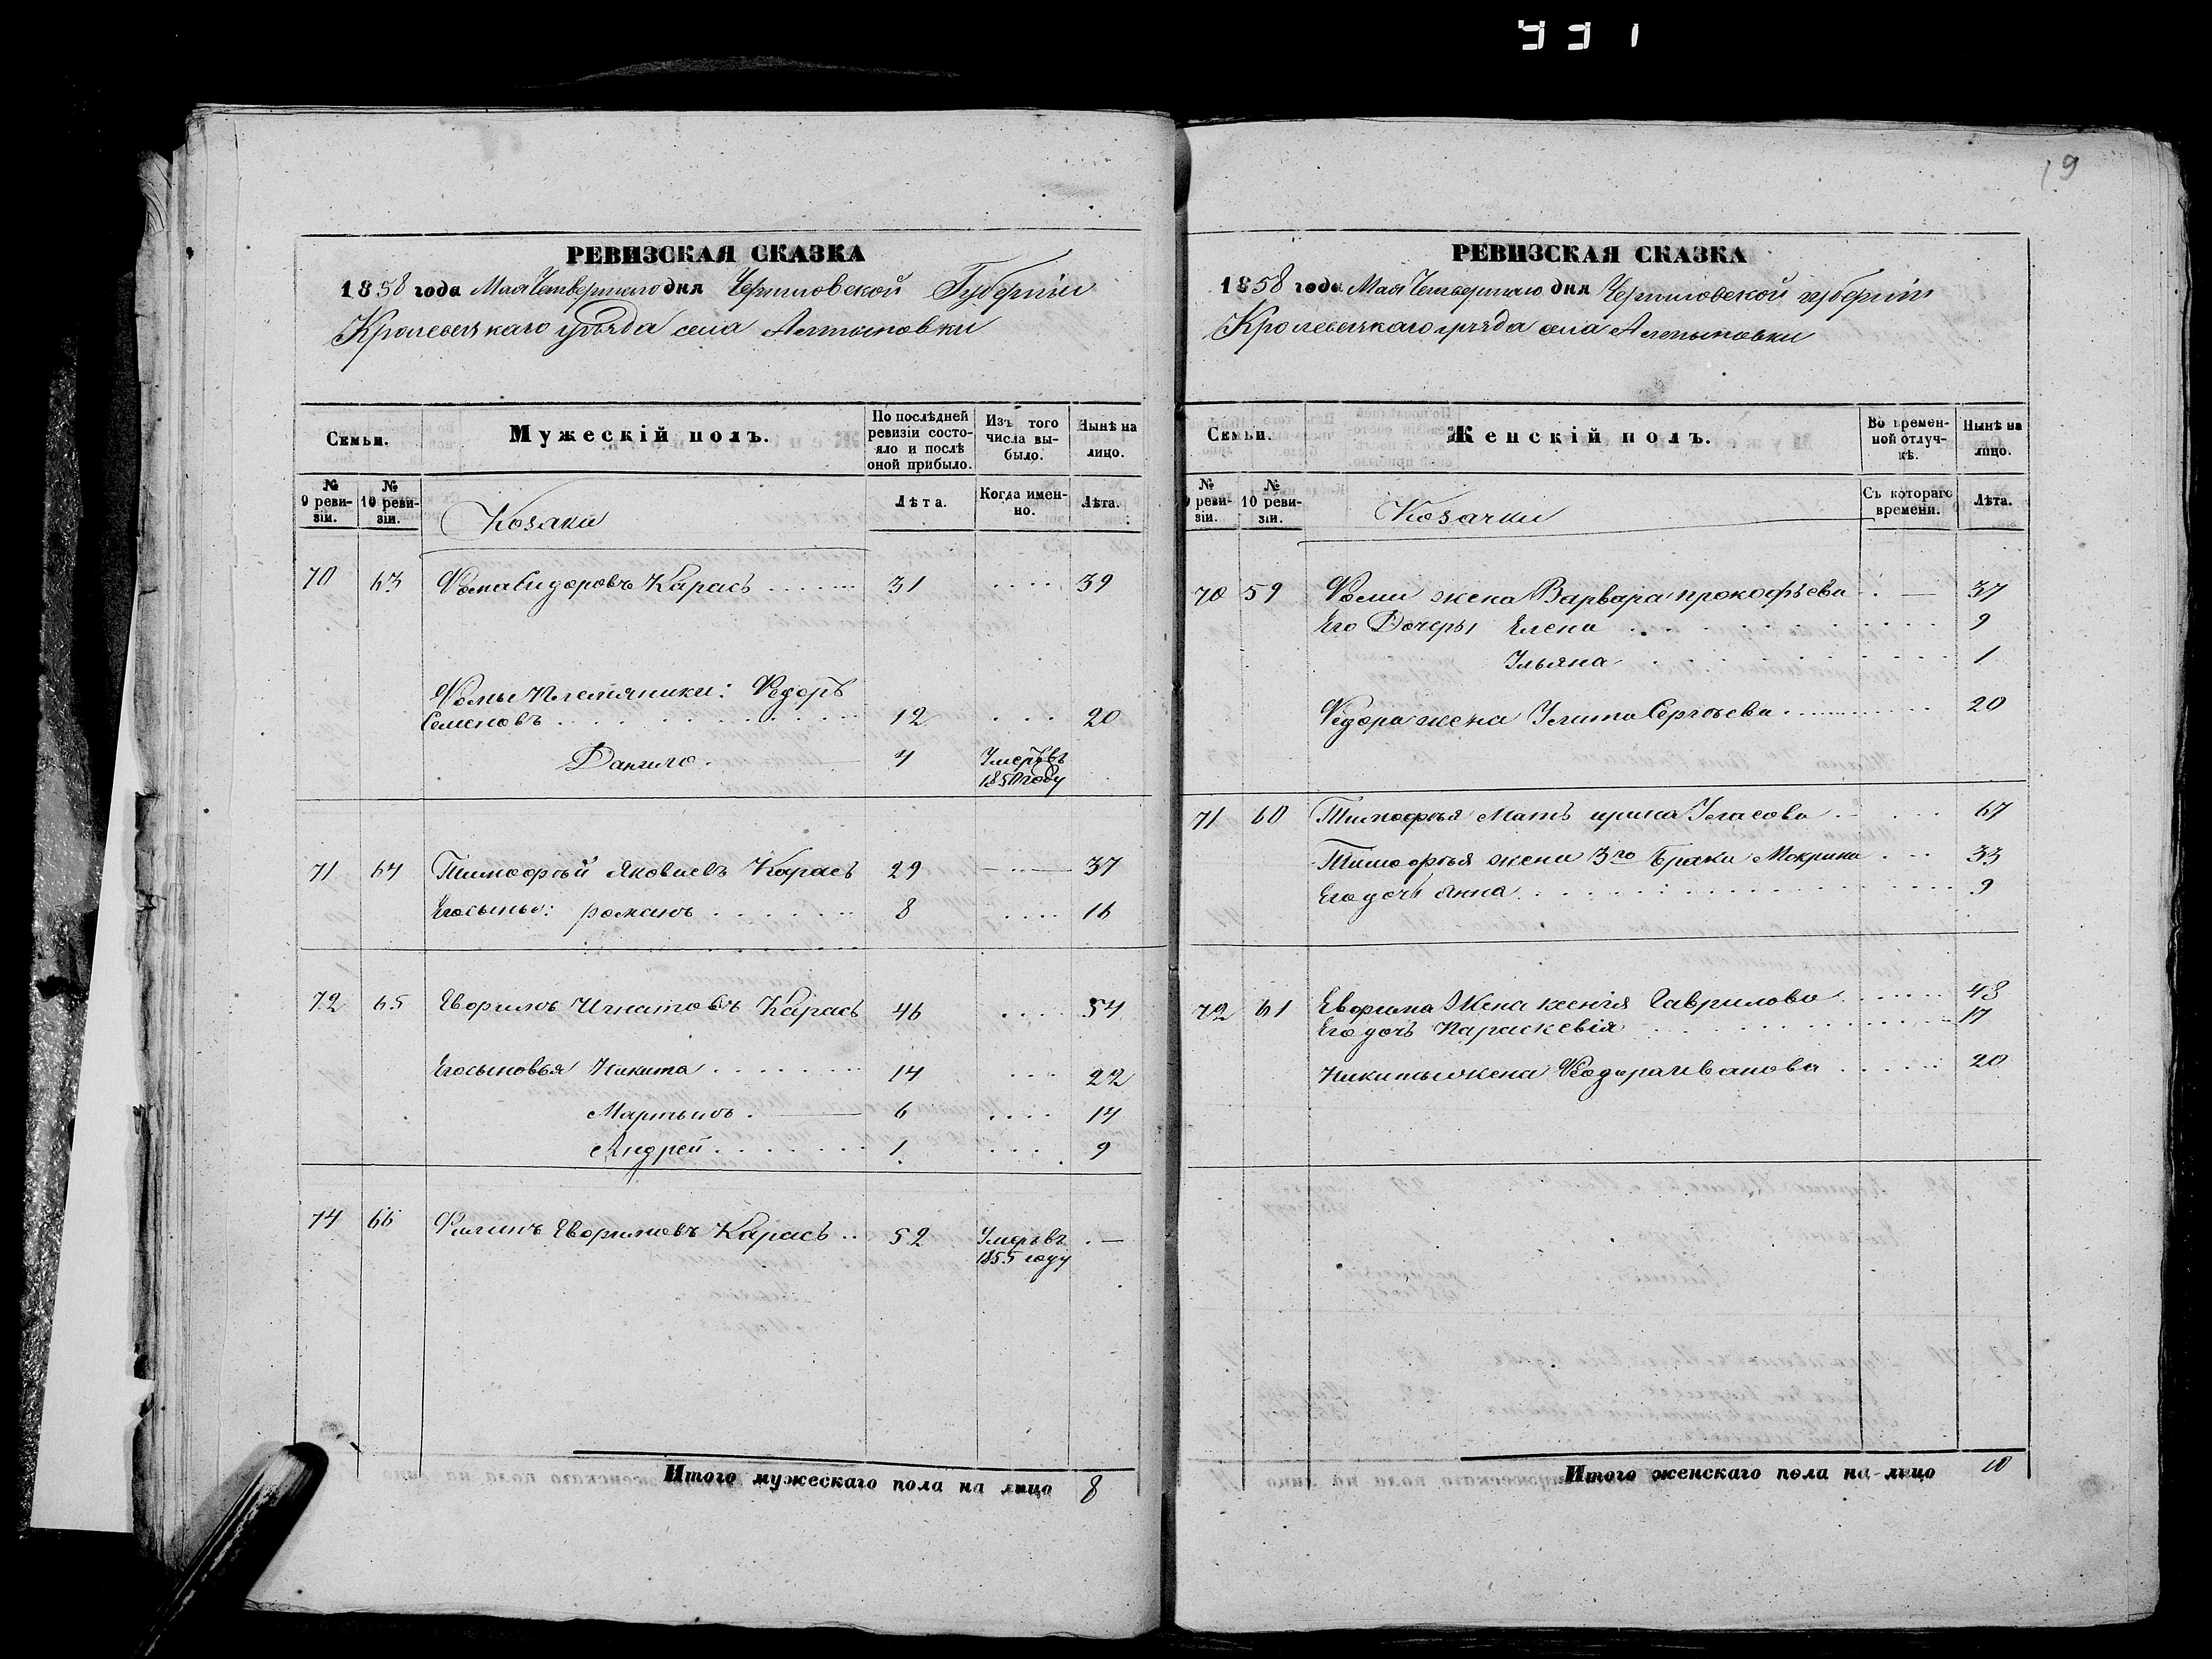 931
19
РЕВИЗСКАЯ СКАЗКА
1858 года Мая Четвертаго дня Черниговской Губернии
Кролевецкаго уѣзда села Алтыновки
Семьи.
Мужескій полъ.
По послѣдней ревизіи состояло и послѣ оной прибыло.
Изъ того числа выбыло.
Нынѣ на лицо.
№ 9 ревизіи.
№ 10 ревизіи.
Козаки
Лѣта.
Когда именно.
Лѣта.
70 63 Фома Сидоровъ Карась 31 39
Фомы Племяники: Федоръ
Семеновъ 12 20
Данило 4 Умеръ въ
1850 году
71 64 Тимофѣй Яковлевъ Карась 29 37
Его сынъ: романъ 8 16
72 65 Евфимъ Игнатовъ Карась 46 54
Его сыновья Никита 14 22
Мартынъ 6 14
Андрей 1 9
74 66 Филипъ Евфимовъ Карась 52 Умеръ въ
1855 году
Итого мужескаго пола на лицо 8
РЕВИЗСКАЯ СКАЗКА
1858 года Мая Четвертаго дня Черниговской губерніи
Кролевецкаго уѣзда села Алтыновки
Семьи.
Женскій полъ.
Во временной отлучкѣ.
Нынѣ на лицо.
№ 9 ревизіи.
№ 10 ревизіи.
Козачки
Съ котораго времени.
Лѣта.
70 59 Фомы жена Варвара прокофьева 37
Его Дочеры Елена 9
Ульяна 1
Федора жена Улита Сергѣева 20
71 60 Тимофѣя Мать ирина Власова 67
Тимофѣя жена 3го брака Мокрина 33
Его дочь Анна 9
72 61 Евфима Жена ксенія Гаврилова 48
Его дочь Параскевія 17
Никиты жена Феодора Иванова 20
Итого женскаго пола на лицо 10